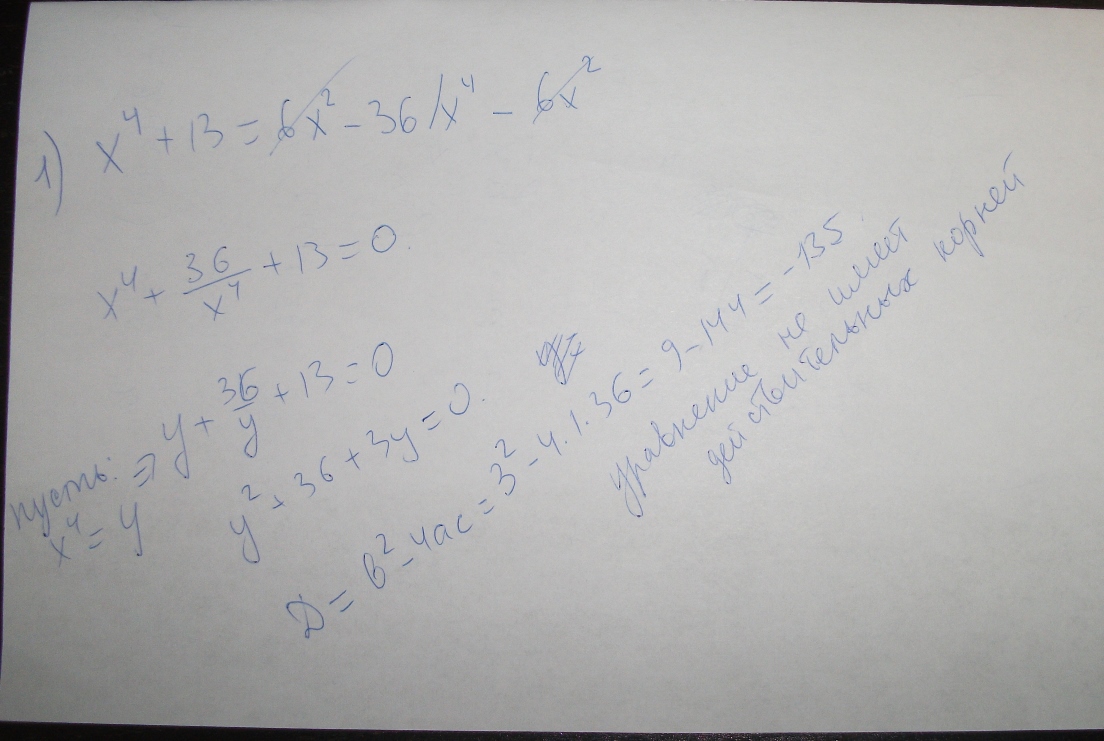 1) x⁴ + 13 = 6x² - 36/x⁴ - 6x²
x⁴ + 36/x⁴ + 13 = 0.
пусть: ⇒ y + 36/y + 13 = 0
x⁴ = y
y² + 36 + 3y = 0.
D = b² - 4ac = 3² - 4.1.36 = 9 - 144 = -135.
уравнение не имеет
действительных корней